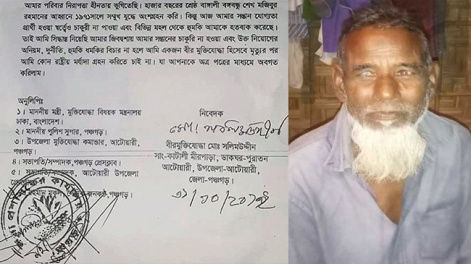 আমার পরিবার নিরাপত্তা হীনতায় ভূগিতেছি। হাজার বছরের শ্রেষ্ঠ বাঙালী বঙ্গবন্ধু শেখ মজিবুর
রহমানের আহবানে ১৯৭১সালে সম্মুখ যুদ্ধে অংশগ্রহন করি। কিন্তু আজ আমার সন্তান যোগ্যতা
প্রার্থী হওয়া স্বত্ত্বেও চাকুরী না পাওয়া এবং বিভিন্ন মহল থেকে হুমকি আমাকে হতবাক করেছে।
তাই আমি সিদ্ধান্ত নিয়েছি আমার জিবদ্দশায় আমার সন্তানের চাকুরি না হওয়া এবং উক্ত নিয়োগের
অনিয়ম, দূর্নীতি, হুমকি ধমকির বিচার না হলে আমি একজন বীর মুক্তিযোদ্ধা হিসেবে মৃত্যুর পর
আমি কোন রাষ্ট্রীয় মর্যাদা গ্রহন করিতে চাই না। যা আপনাকে অত্র পত্রের মাধ্যমে অবগত
করিলাম।
অনুলিপিঃ
১। মাননীয় মন্ত্রী, মুক্তিযোদ্ধা বিষয়ক মন্ত্রনালয়
ঢাকা, বাংলাদেশ।
২। মাননীয় পুলিশ সুপার, পঞ্চগড়।
৩। উপজেলা মুক্তিযোদ্ধা কমান্ডার, আটোয়ারী,
পঞ্চগড়।
৪। সভাপতি/সম্পাদক, পঞ্চগড় প্রেসক্লাব।
৫। সভাপতি/সম্পাদক, আটোয়ারী উপজেলা
পঞ্চগড়।
নিবেদক
বীরমুক্তিযোদ্ধা মোঃ সলিমউদ্দীন
সাং-কাটালী মীরপাড়া, ডাকঘর-পুরাতন
আটোয়ারী, উপজেলা-আটোয়ারী,
জেলা-পঞ্চগড়।